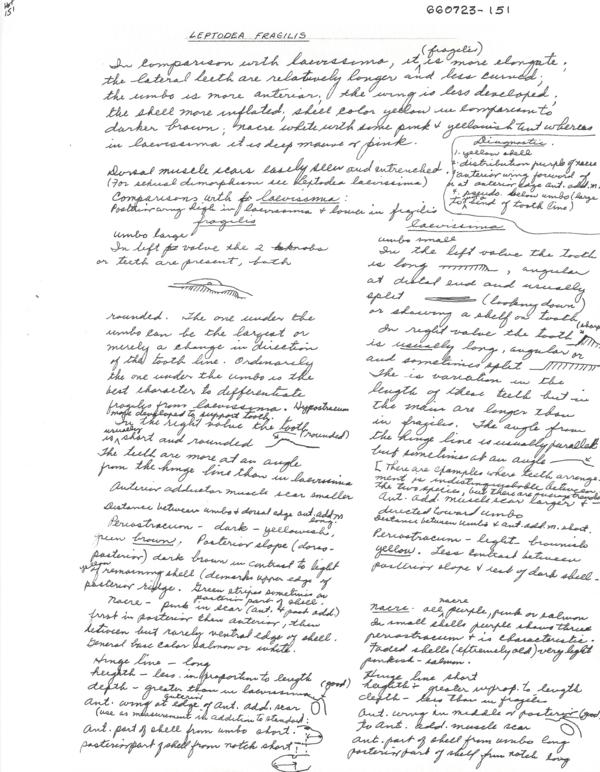 660723-151
151
LEPTODEA FRAGILIS
In comparison with laevissima, it (fragilis) is more elongate;
the lateral teeth are relatively longer and less curved;
the umbo is more anterior; the wing is less developed;
the shell more inflated; shell color yellow in comparison to
darker brown; nacre white with some pink & yellowish tint whereas
in laevissima it is deep mauve or pink.
Diagnostic
1. yellow shell
2. distribution purple of nacre
3. anterior wing forward of
or at anterior edge ant. add. m.
4. pseudo. below umbo (large
to end of tooth line)
Dorsal muscle scars easily seen and entrenched.
(For sexual dimorphism see Leptodea laevissima)
Comparisons with laevissima:
Posterior wing high in laevissima & lower in fragilis
fragilis
umbo large
In left valve the 2 knobs
or teeth are present, both
rounded. The one under the
umbo can be the largest or
merely a change in direction
of the tooth line. Ordinarily
the one under the umbo is the
best character to differentiate
fragilis from laevissima. Hypostracum
more developed to support tooth.
In the right valve the tooth
is usually short and rounded (rounded)
The teeth are more at an angle
from the hinge line than in laevissima
Anterior adductor muscle scar smaller
Distance between umbo & dorsal edge ant. add. m. long.
Periostracum - dark - yellowish,
green brown. Posterior slope (dorso-
posterior) dark brown in contrast to light
of remaining shell (demarks upper edge of
posterior ridge. Green stripes sometimes on
posterior part of shell.
Nacre - pink in scar (ant. & post add)
first in posterior then anterior, then
between but rarely ventral edge of shell.
General base color salmon or white.
Hinge line - long
heighth - less in proportion to length
depth - greater than in laevissima (good)
Ant. wing at anterior edge of Ant. add. scar
(use as measurement in addition to standard:
Ant. part of shell from umbo short.
posterior part of shell from notch short -
laevissima
umbo small
In the left valve the tooth
is long, angular
at distal end and usually
split (looking down)
or showing a shelf on tooth
In right valve the tooth (sharp
is usually long, angular or
and sometimes split
The is variation in the
length of these teeth but in
the main are longer than
in fragilis. The angle from
the hinge line is usually parallel
but sometimes at an angle
[There are examples where teeth arrange-
ment is indistinguishable between
the two species, but these are
Ant. add. muscle scar larger &
directed toward umbo
Distance between umbo & ant. add. m. short.
Periostracum - light - brownish
yellow. Less contrast between
posterior slope & rest of dark shell -
nacre - all nacre purple, pink or salmon
In small shells purple shows thru
periostracum & is characteristic.
Faded shells (extremely old) very light
pinkish - salmon.
Hinge line short
heighth - greater in prop. to length
depth - less than in fragilis
Ant. wing in middle or posterior (good)
to ant. add. muscle scar
Ant. part of shell from umbo long
posterior part of shell from notch long